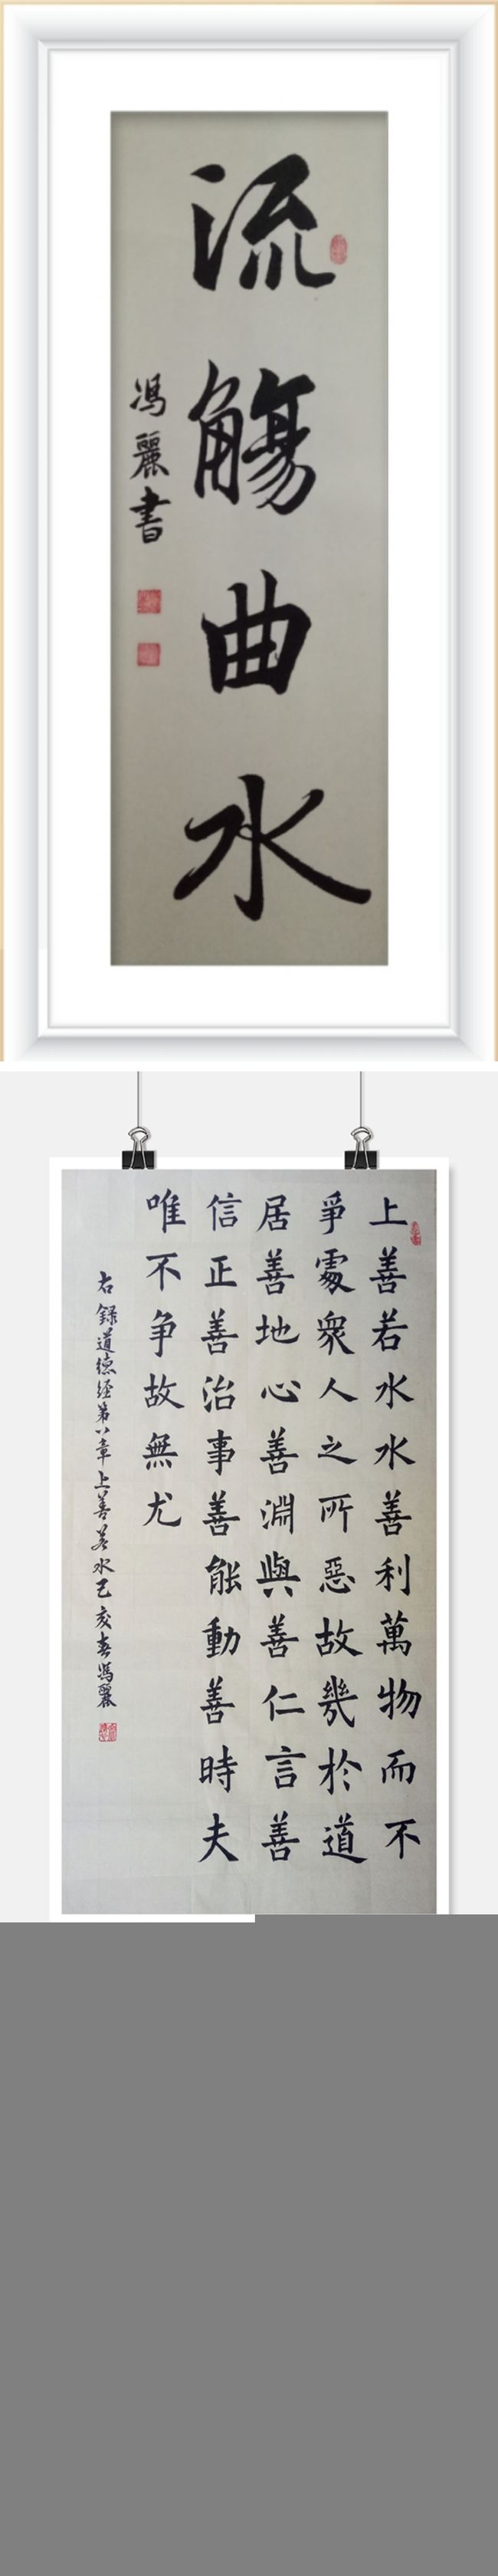 流觴曲水
馮麗書
上善若水水善利萬物而不
爭處衆人之所惡故幾於道
居善地心善淵與善仁言善
信正善治事善能動善時夫
唯不争故無尤
右録道德经第八章上善若水己亥春馮麗